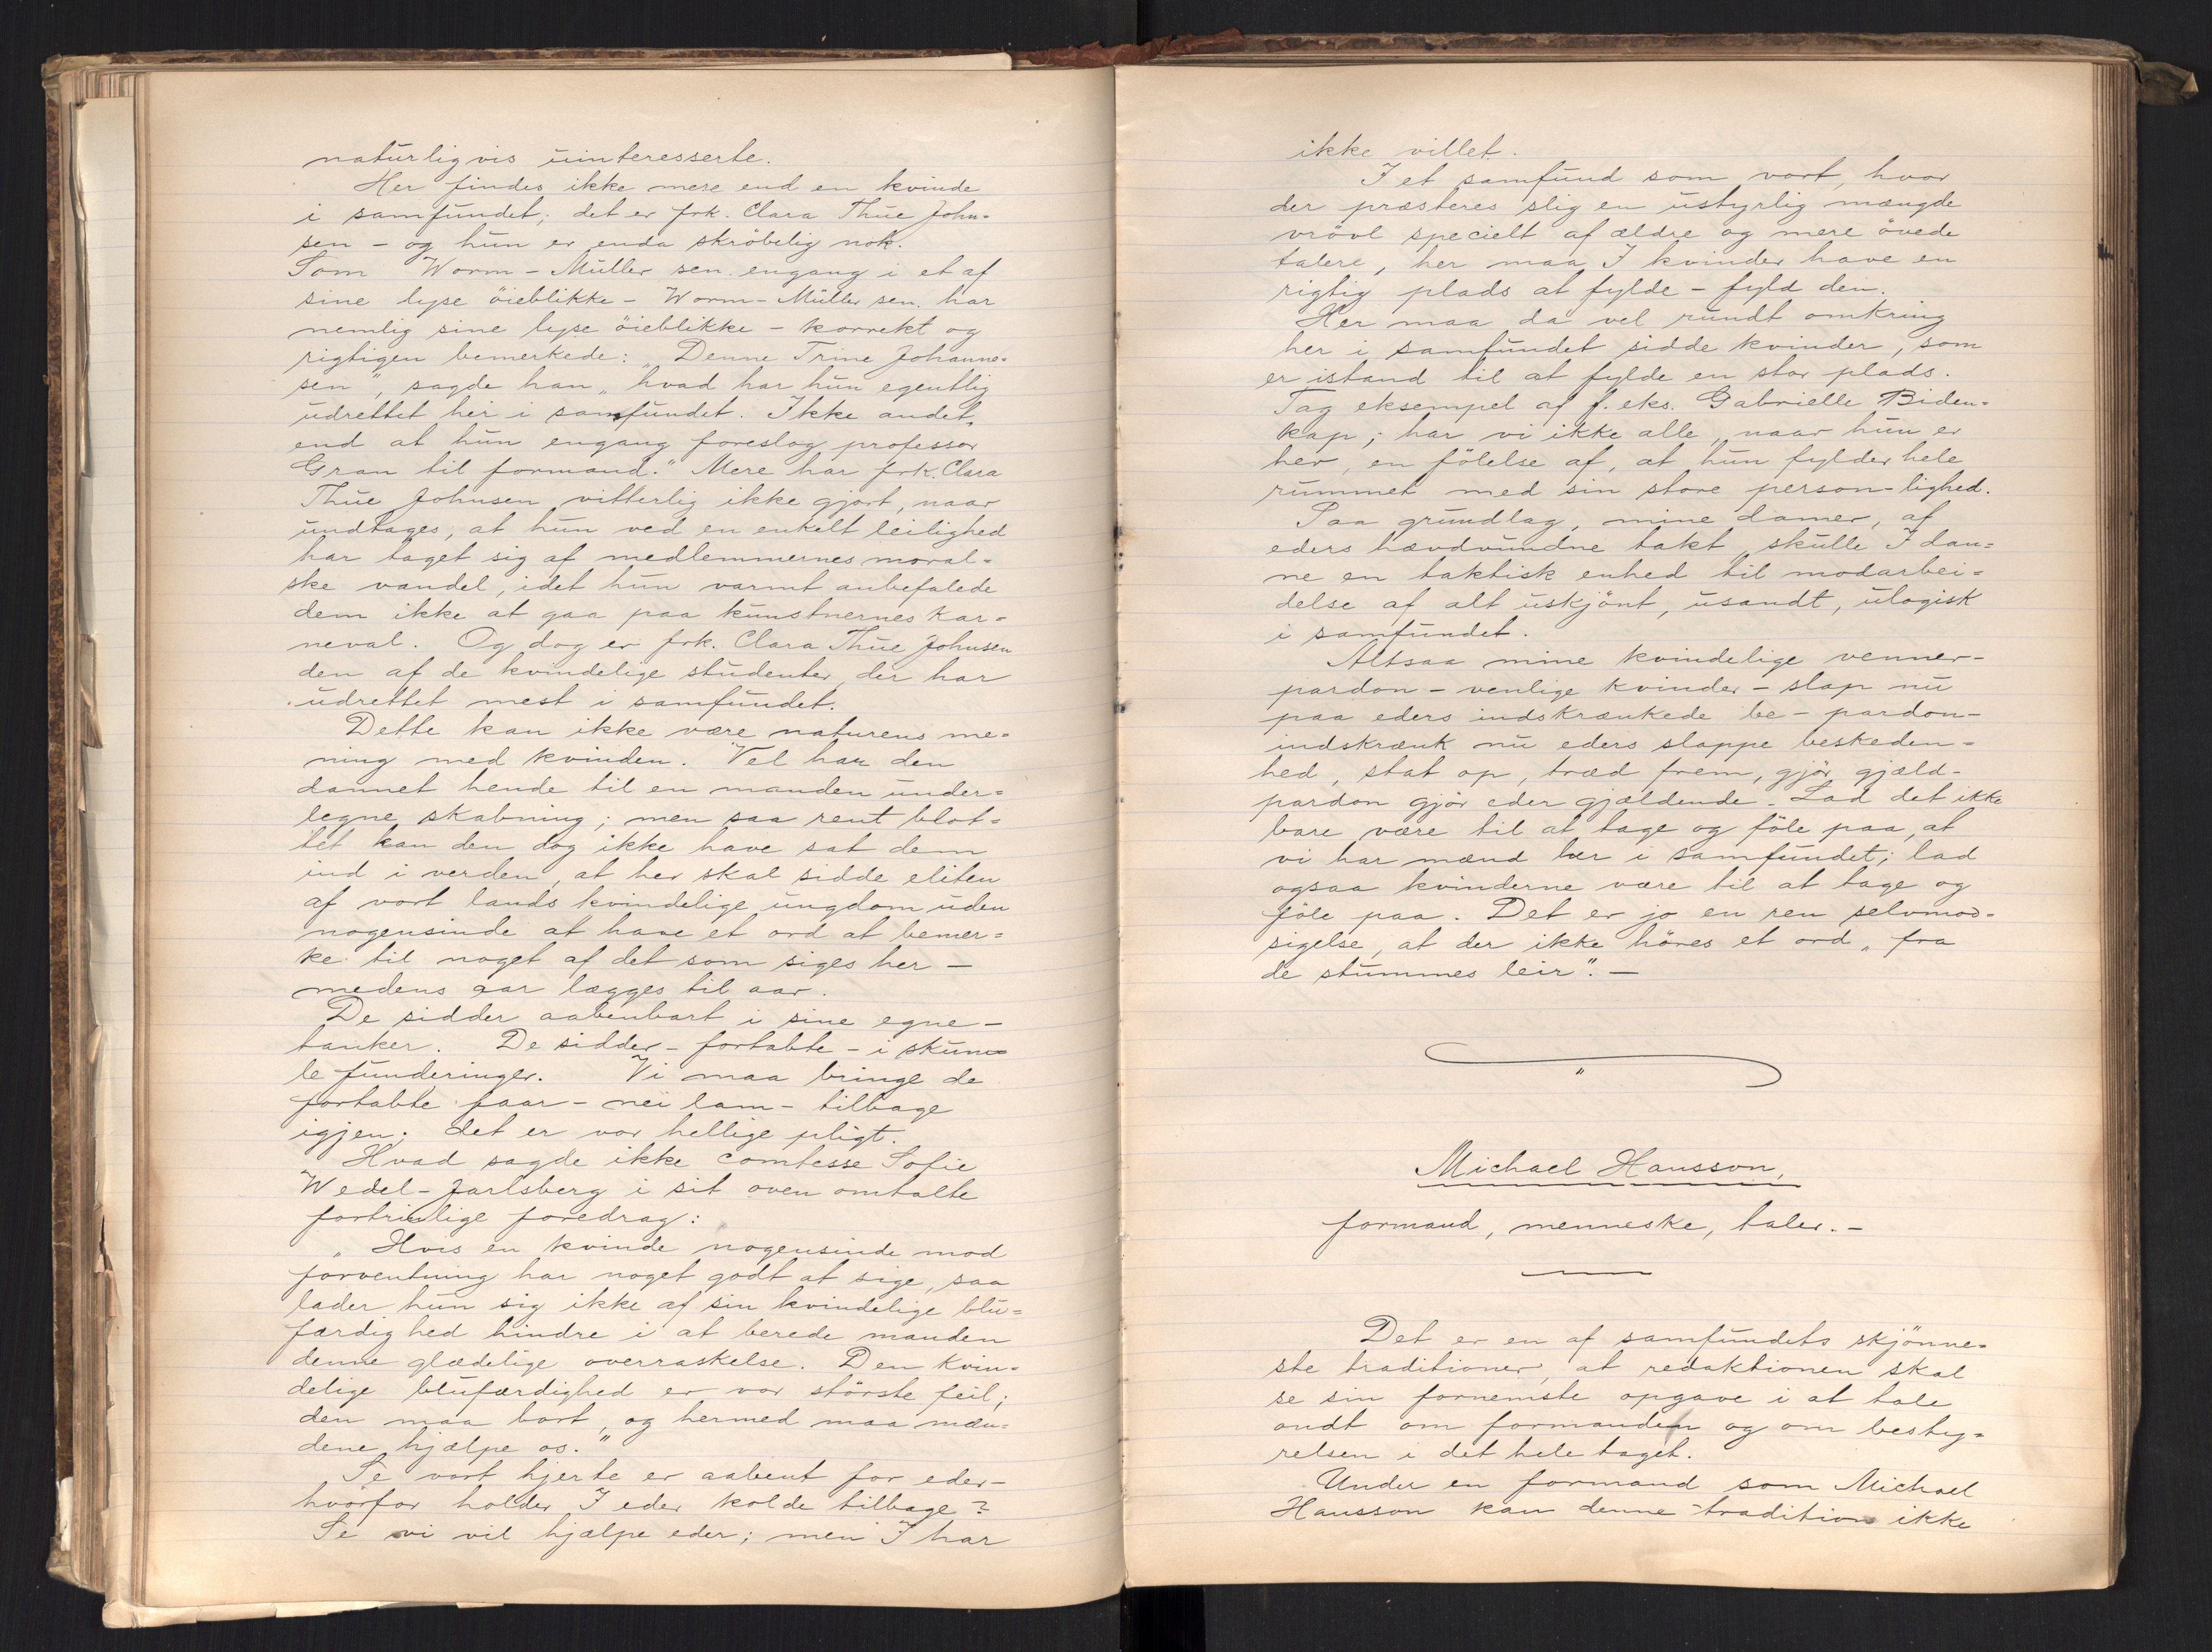 naturligvis uinteresserte.
Her findes ikke mere end en kvinde
i samfundet; det er frk. Clara Thue John-
sen - og hun er enda skröbelig nok.
Som Worm-Müller sen. engang i et af
sine lyse öieblikke - Worm-Müller sen. har
nemlig sine lyse öieblikke - korrekt og
rigtigen bemerkede: „Denne Trine Johanne-
sen", sagde han „hvad har hun egentlig
udrettet her i samfundet. Ikke andet,
end at hun engang foreslog professor
Gran til formand." Mere har frk. Clara
Thue Johnsen vitterlig ikke gjort, naar
undtages, at hun ved en enkelt leilighed
har taget sig af medlemmernes moral-
ske vandel, idet hun varmt anbefalede
dem ikke at gaa paa kunstnernes kar-
neval. Og dog er frk. Clara Thue Johnsen
den af de kvindelige studenter, der har
udrettet mest i samfundet.
Dette kan ikke være naturens me-
ning med kvinden. Vel har den
dannet hende til en manden under-
legne skabning; men saa rent blot-
tet kan den dog ikke have sat dem
ind i verden, at her skal sidde eliten
af vort lands kvindelige ungdom uden
nogensinde at have et ord at bemer-
ke til noget af det som siges her -
medens aar lægges til aar.
De sidder aabenbart i sine egne -
tanker. De sidder - fortabte - i skum-
le funderinger. Vi maa bringe de
fortabte faar - nei lam - tilbage
igjen; det er vor hellige pligt.
Hvad sagde ikke comtesse Sofie
Wedel-Jarlsberg i sit oven omtalte
fortrinlige foredrag:
„Hvis en kvinde nogensinde mod
forventning har noget godt at sige, saa
lader hun sig ikke af sin kvindelige blu-
færdighed hindre i at berede manden
denne glædelige overraskelse. Den kvin-
delige blufærdighed er vor störste feil;
den maa bort, og hermed maa mæn-
dene hjælpe os."
Se vort hjerte er aabent for eder -
hvorfor holder I eder kolde tilbage?
Se vi vil hjælpe eder; men I har
ikke villet.
I et samfund som vort, hvor
der præsteres slig en ustyrlig mængde
vrövl specielt af ældre og mere övede
talere, her maa I kvinder have en
rigtig plads at fylde - fyld den.
Her maa da vel rundt omkring
her i samfundet sidde kvinder, som
er istand til at fylde en stor plads.
Tag eksempel af f. eks. Gabrielle Biden-
kap; har vi ikke alle, naar hun er
her, en fölelse af, at hun fylder hele
rummet med sin store person-lighed.
Paa grundlag, mine damer, af
eders hævdvundne takt skulle I dan-
ne en taktisk enhed til modarbei-
delse af alt uskjönt, usandt, ulogisk
i samfundet.
Altsaa mine kvindelige venner -
pardon - venlige kvinder - slap nu
paa eders indskrænkede be - pardon -
indskrænk nu eders slappe beskeden-
hed, stat op, træd frem, gjör gjæld -
pardon gjör eder gjældende. Lad det ikke
bare være til at tage og föle paa, at
vi har mænd her i samfundet; lad
ogsaa kvinderne være til at tage og
föle paa. Det er jo en ren selvmod-
sigelse, at der ikke höres et ord „fra
de stummes leir". -
Michael Hansson,
formand, menneske, taler. -
Det er en af samfundets skjönne-
ste traditioner, at redaktionen skal
se sin fornemste opgave i at tale
ondt om formanden og om besty-
relsen i det hele taget.
Under en formand som Michael
Hansson kan denne tradition ikke